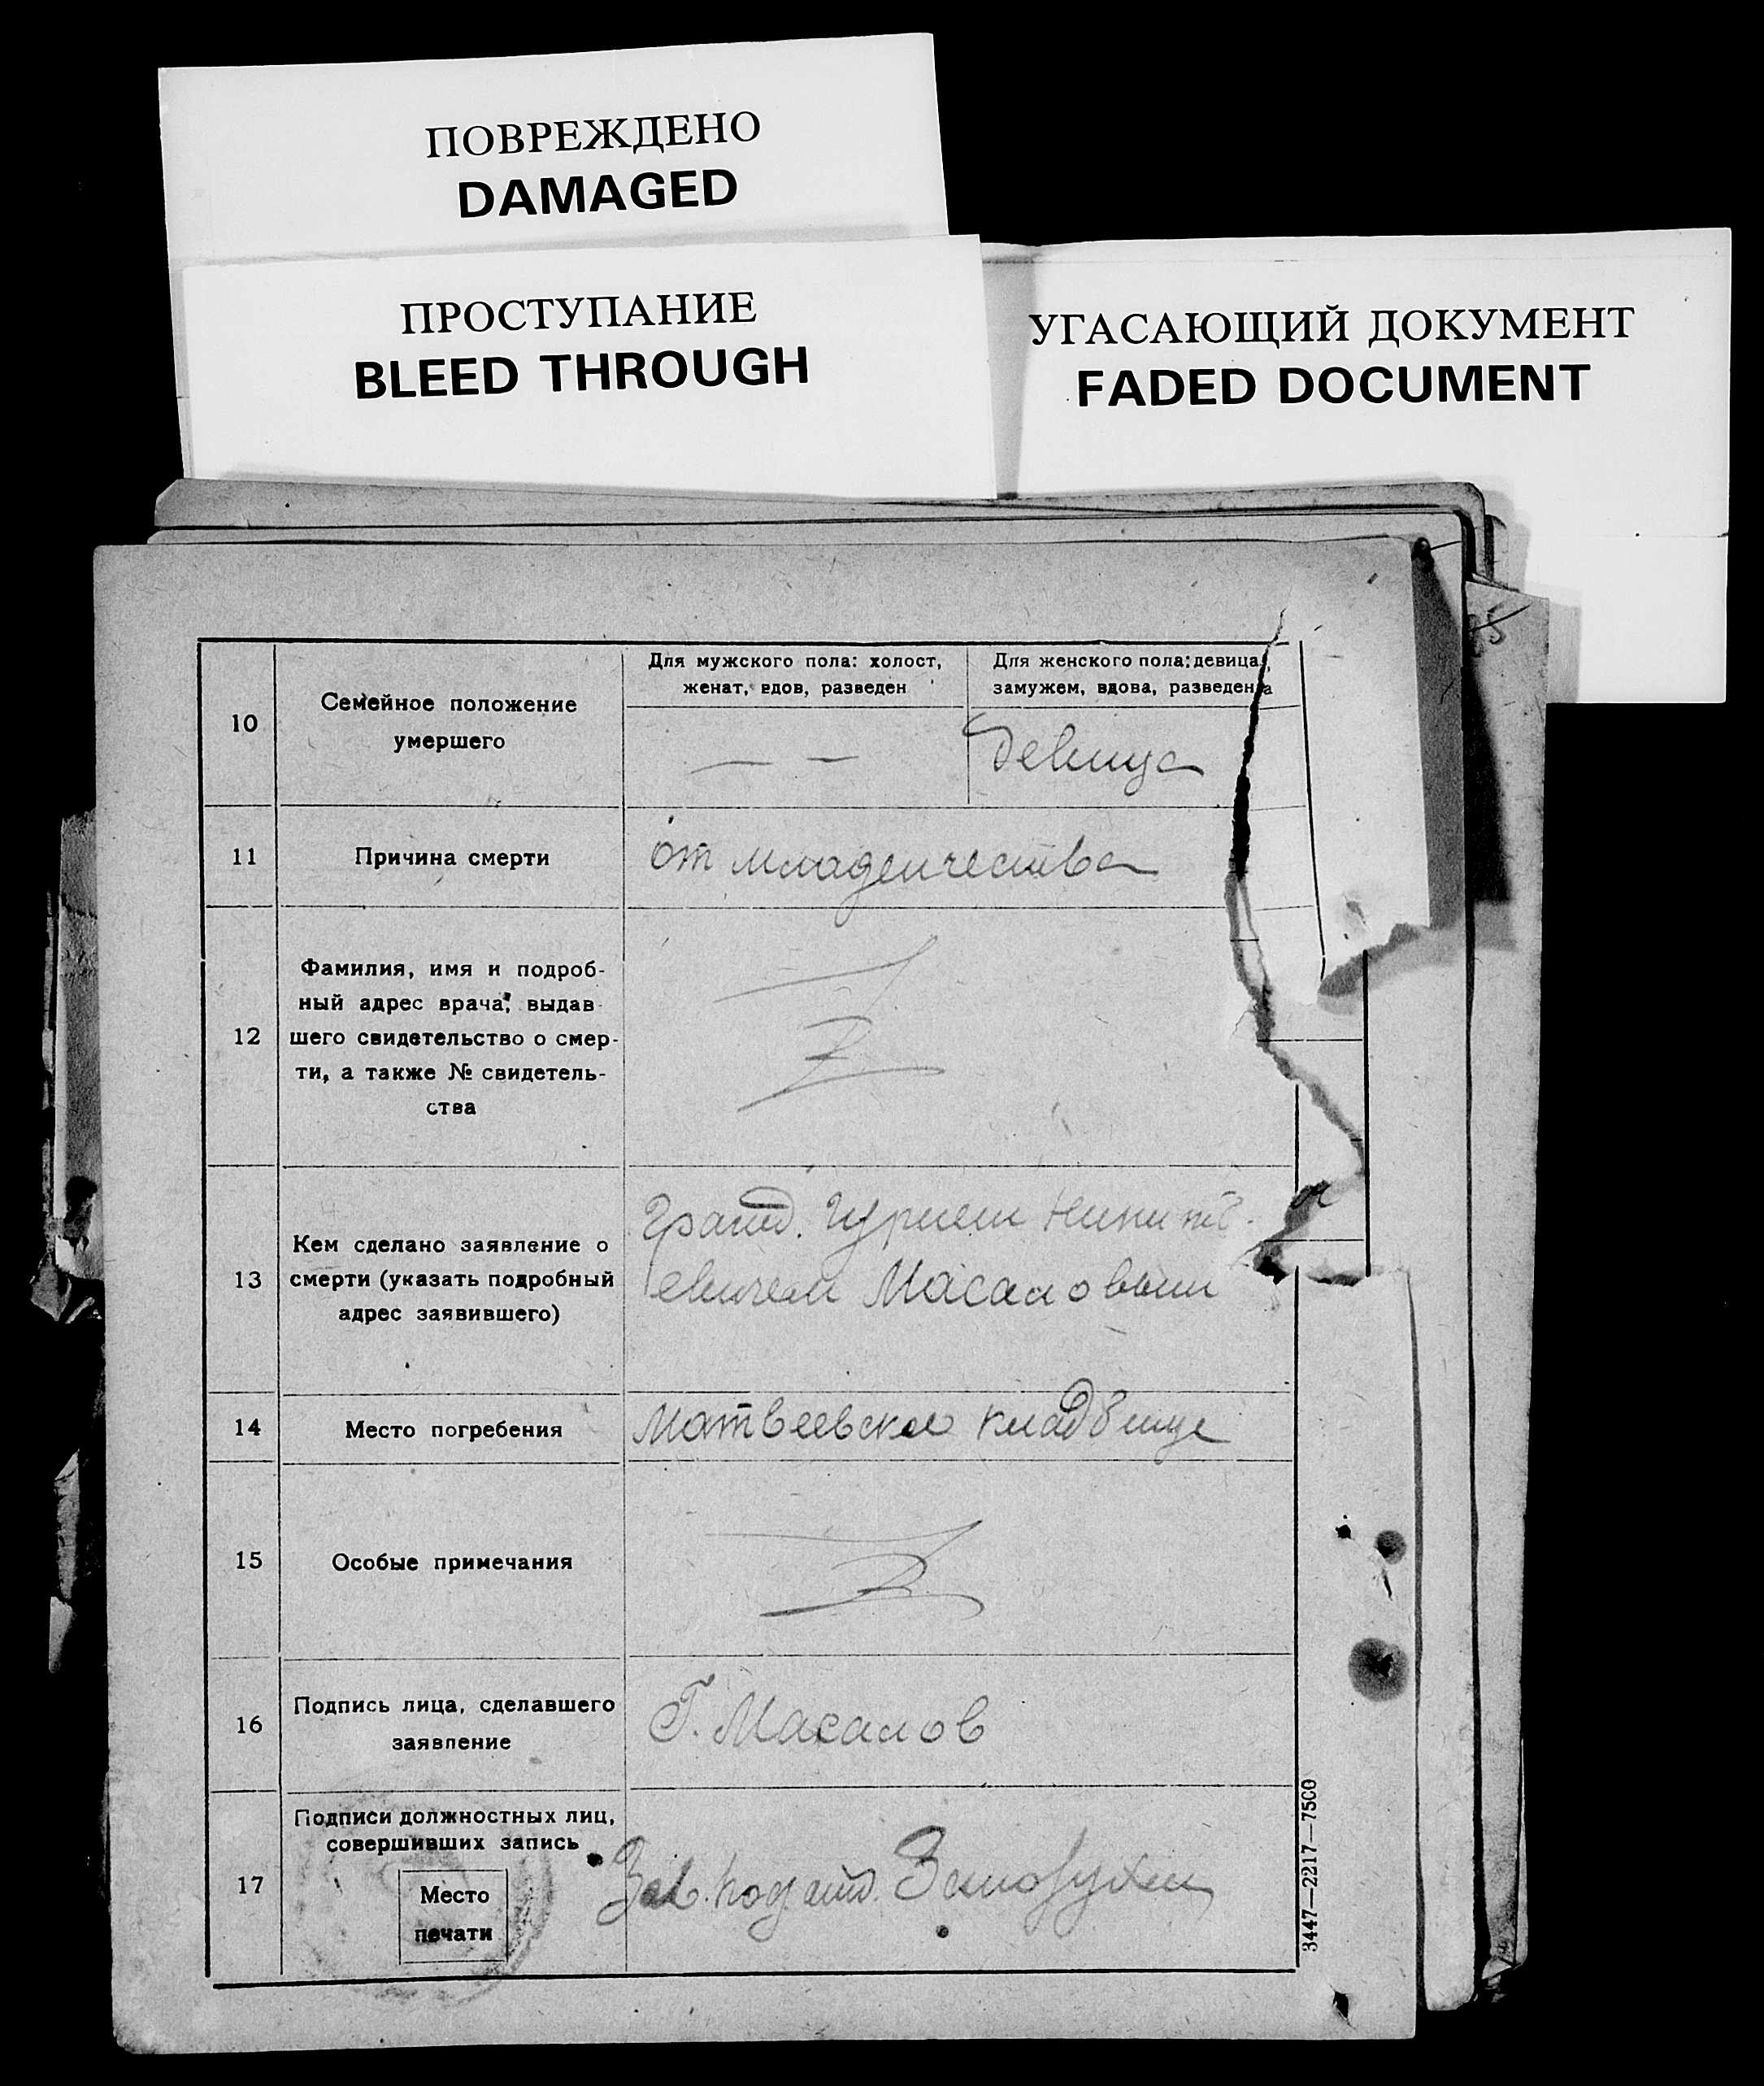 ПОВРЕЖДЕНО
DAMAGED
ПРОСТУПАНИЕ
BLEED THROUGH
УГАСАЮЩИЙ ДОКУМЕНТ
FADED DOCUMENT
10
Семейное положение
умершего
Для мужского пола: холост,
женат, вдов, разведен
Для женского пола: девица,
замужем, вдова, разведена
— —
девица
11
Причина смерти
от младенчества
12
Фамилия, имя и подроб-
ный адрес врача, выдав-
шего свидетельство о смер-
ти, а также № свидетель-
ства
13
Кем сделано заявление о
смерти (указать подробный
адрес заявившего)
Гражд. Гурием Никит-
евичем Масаловым
14
Место погребения
Матвеевское кладбище
15
Особые примечания
16
Подпись лица, сделавшего
заявление
Г. Масалов
17
Подписи должностных лиц,
совершивших запись
Место
печати
Зав. подотд.
3447—2217—7500